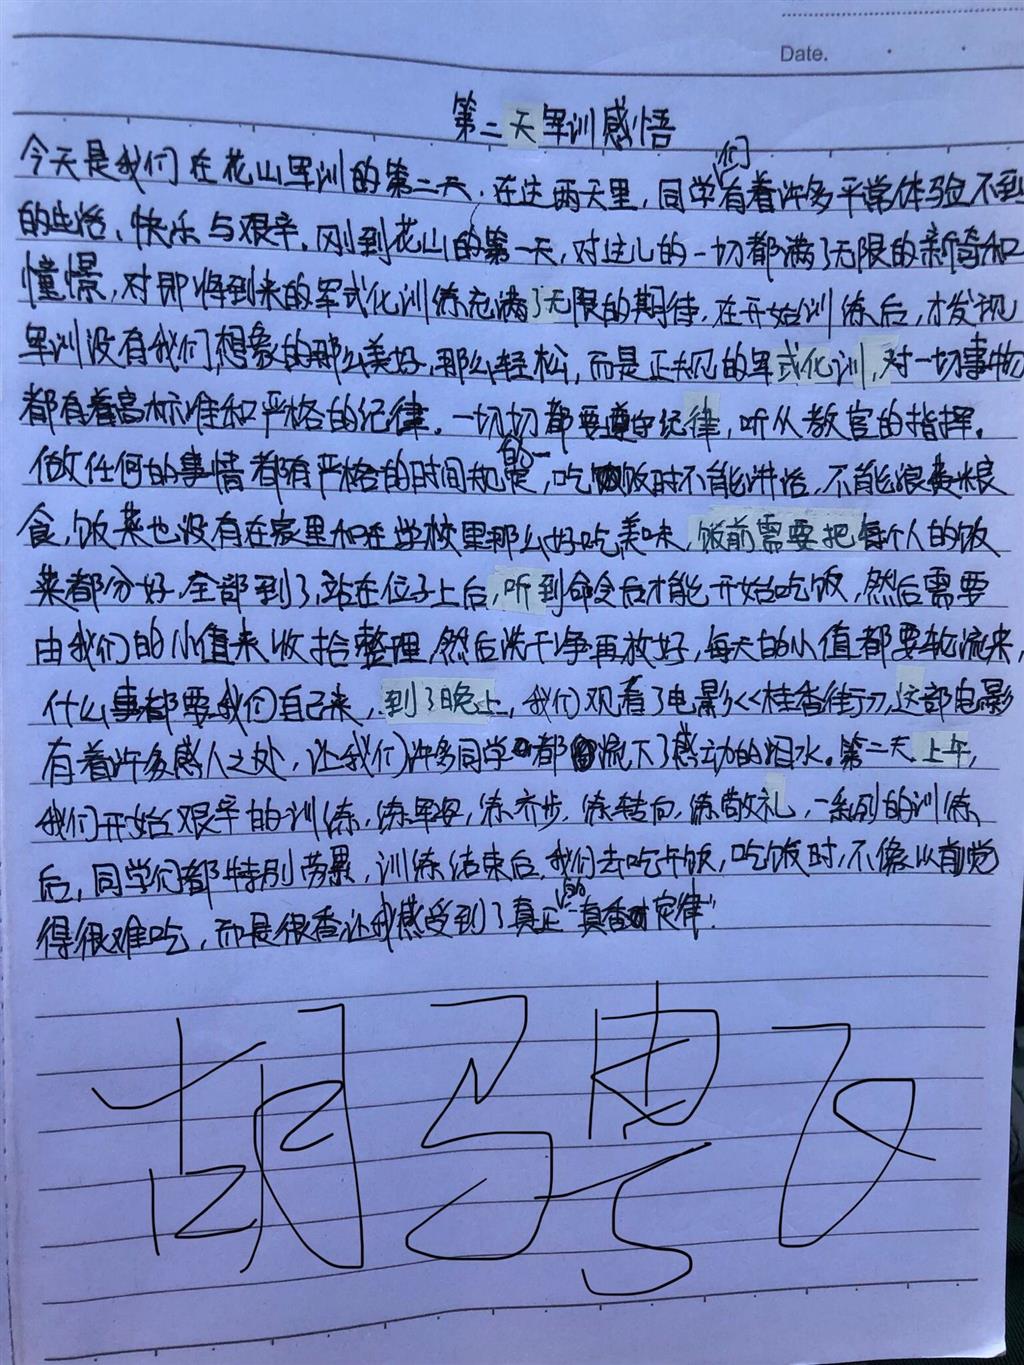 Date.
第二天军训感悟
今天是我们在花山军训的第二天,在这两天里,同学们有着许多平常体验不到
的生活、快乐与艰辛。刚到花山的第一天,对这儿的一切都满了无限的新奇和
憧憬,对即将到来的军式化训练充满了无限的期待,在开始训练后,才发现
军训没有我们想象的那么美好,那么轻松,而是正规的军式化训,对一切事物
都有着高标准和严格的纪律。一切切都要遵守纪律,听从教官的指挥。
做任何的事情都有严格的时间规定,吃饭时不能讲话,不能浪费粮
食,饭菜也没有在家里和在学校里那么好吃美味,饭前需要把每个人的饭
菜都分好,全部到了,站在位子上后,听到命令后才能开始吃饭,然后需要
由我们的小值来收拾整理,然后洗干净再放好,每天的小值都要轮流来,
什么事都要我们自己来,到了晚上,我们观看了电影<<桂香街>>,这部电影
有着许多感人之处,让我们许多同学都流下了感动的泪水。第二天上午,
我们开始艰辛的训练,练军姿,练齐步,练转向,练敬礼,一系列的训练
后,同学们都特别劳累,训练结束后,我们去吃午饭,吃饭时,不像以前觉
得很难吃,而是很香让我感受到了真正的“真香定律”.